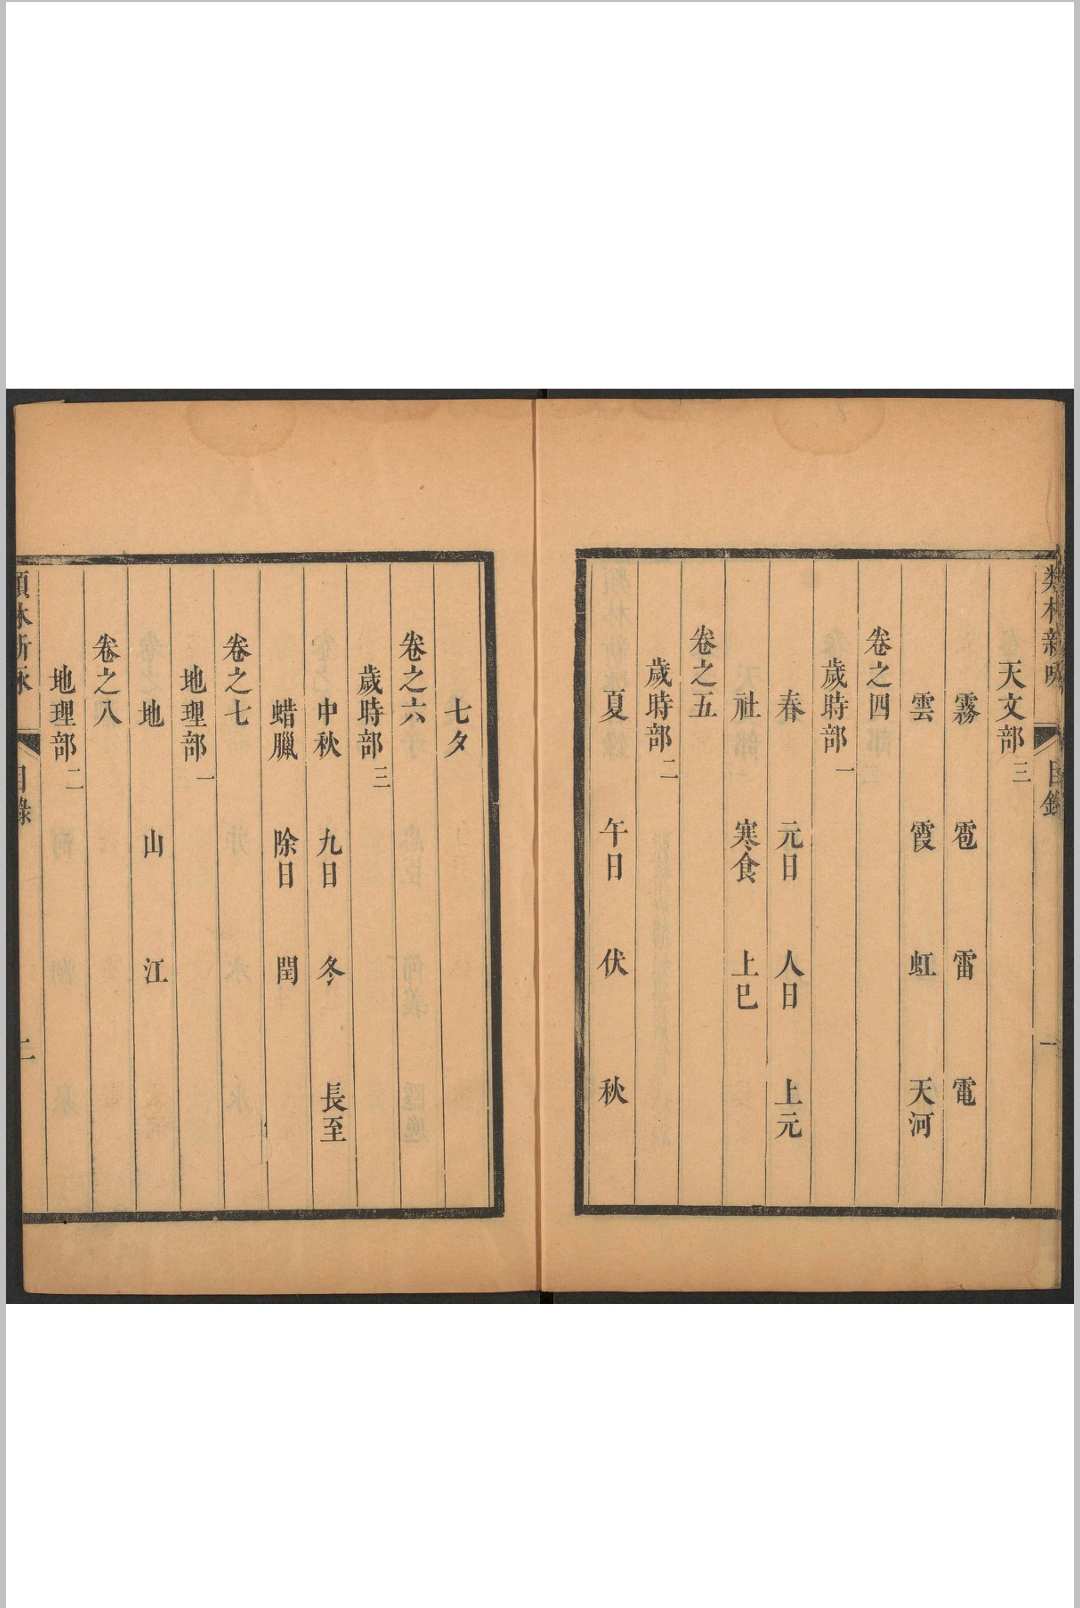 類林新咏 目錄 一
天文部三
霧 雹 雷 電
雲 霞 虹 天河
卷之四
歲時部一
春 元日 人日 上元
社 寒食 上巳
卷之五
歲時部二
夏 午日 伏 秋
七夕
卷之六
歲時部三
中秋 九日 冬 長至
蜡臘 除日 閏
卷之七
地理部一
地 山 江
卷之八
地理部二
類林新咏 目錄 二